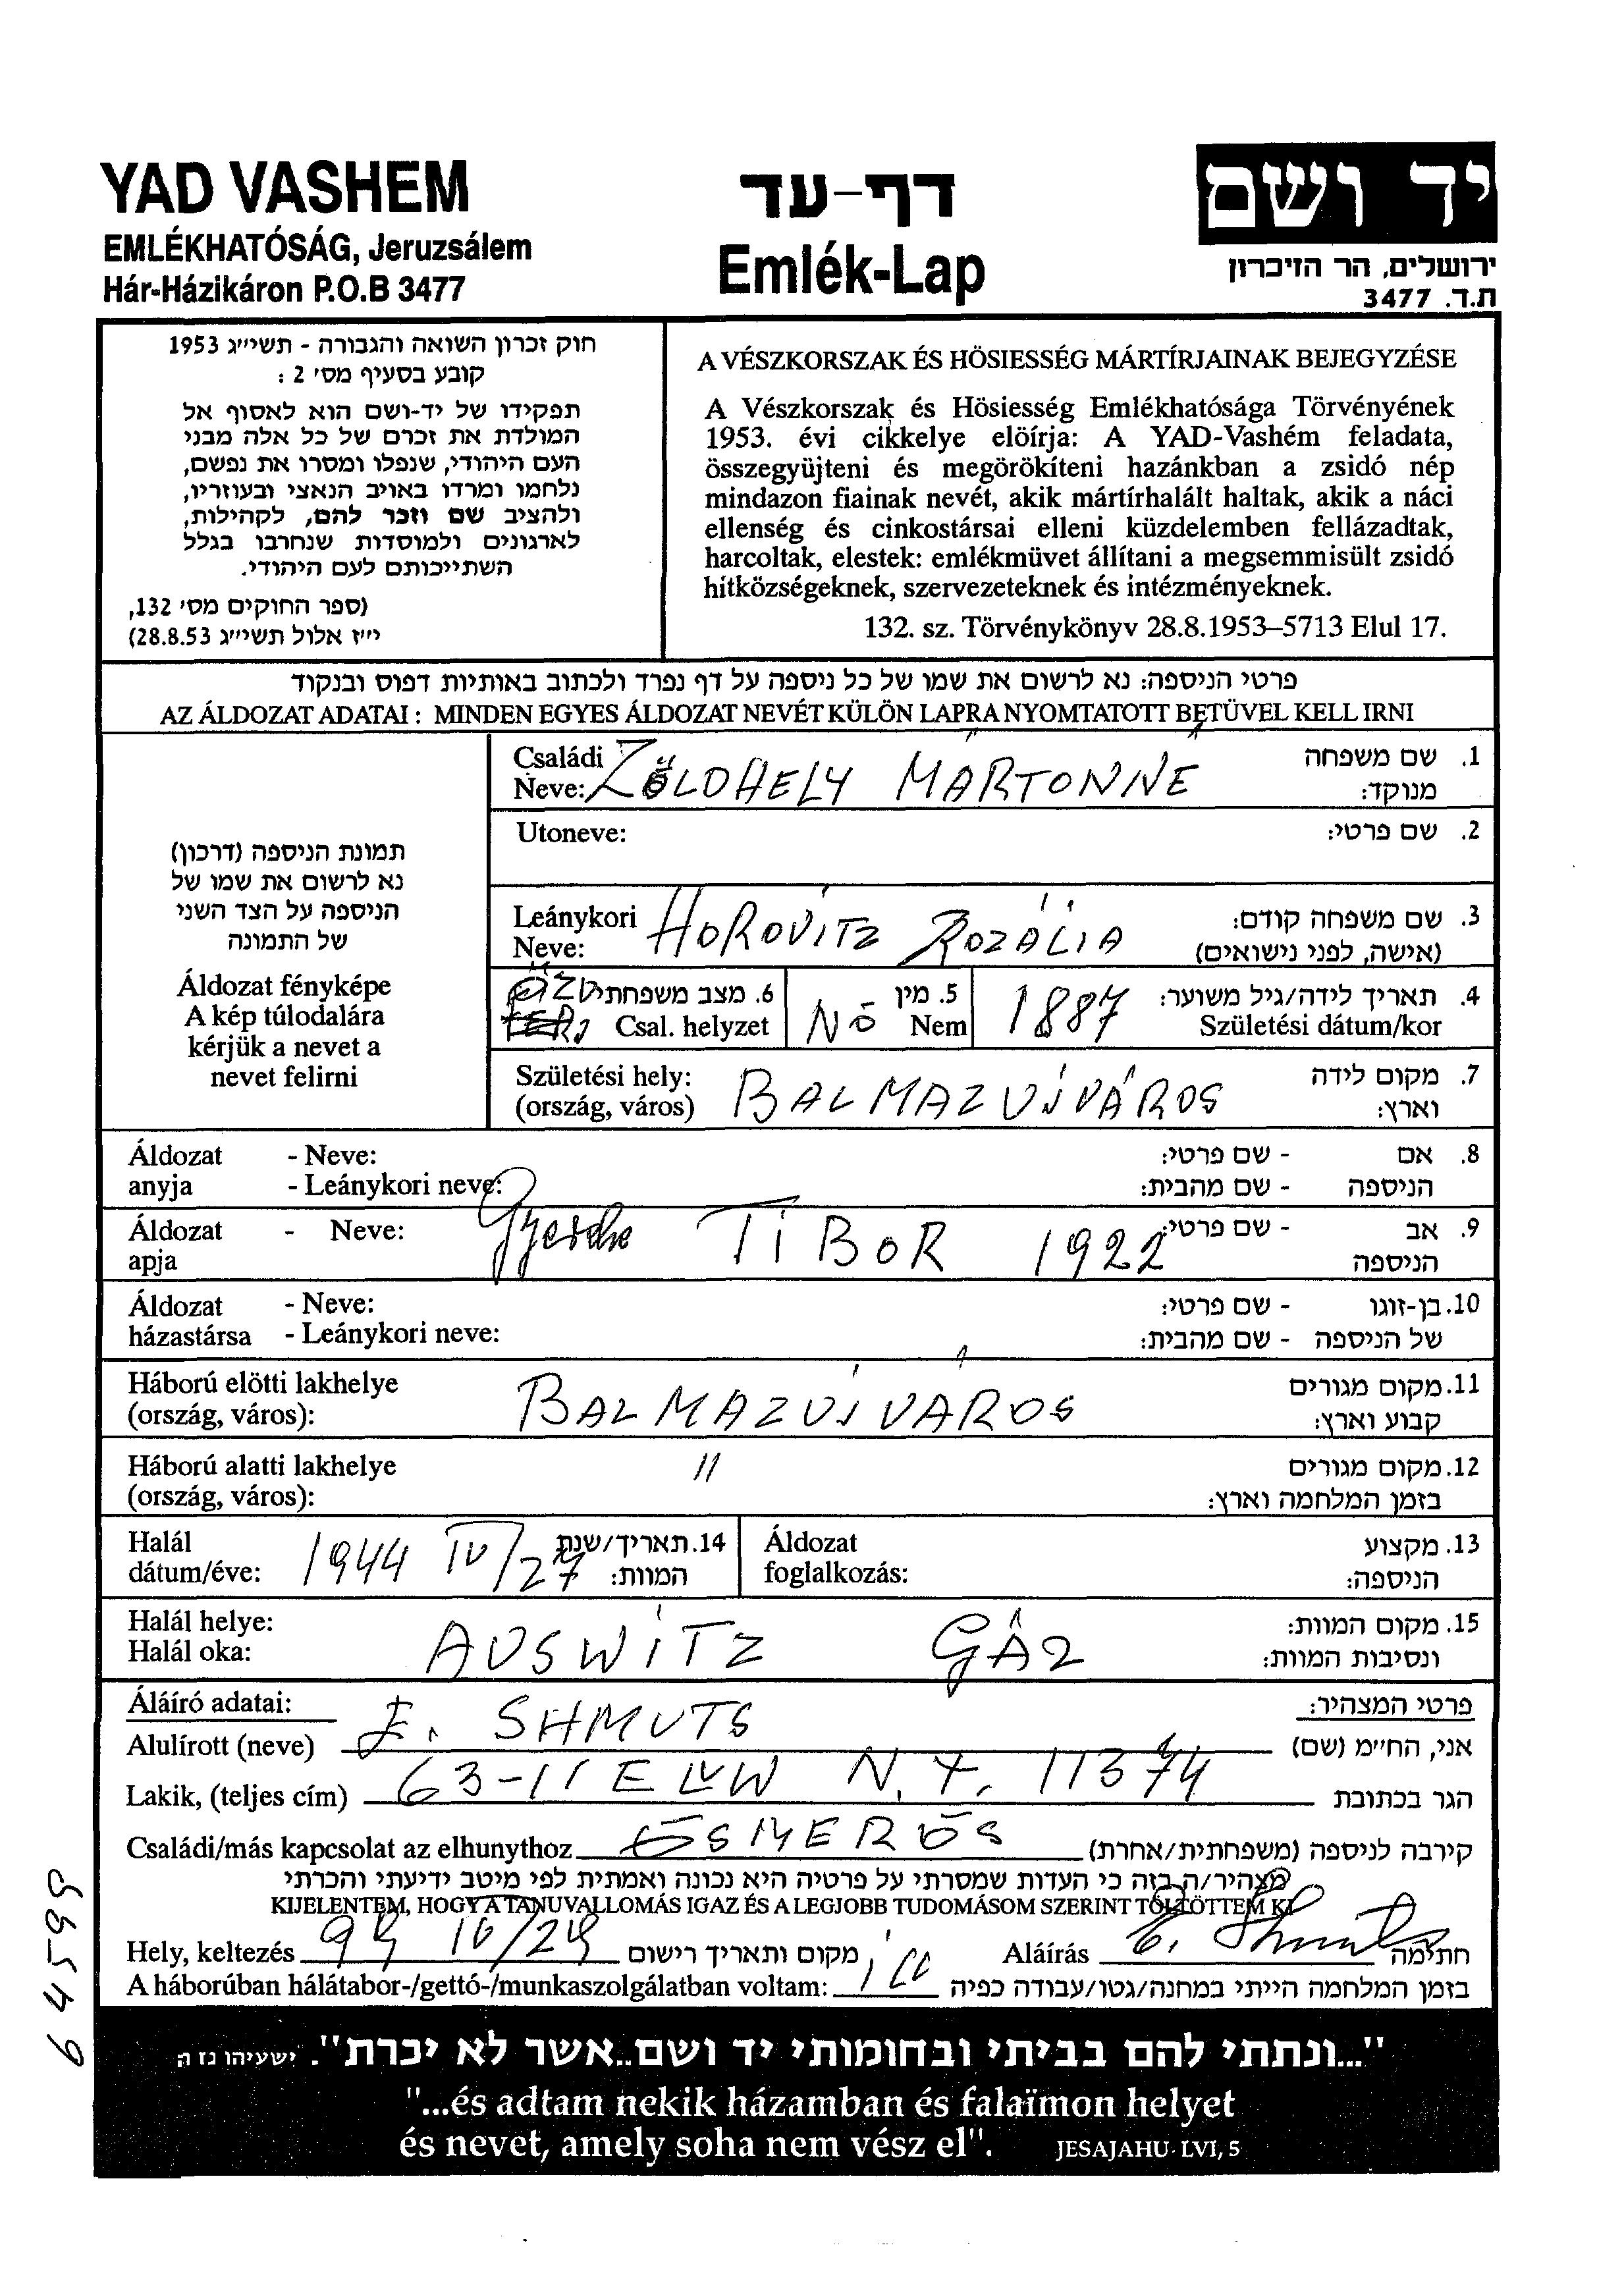 YAD VASHEM
EMLÉKHATÓSÁG, Jeruzsálem
Hár-Házikáron P.O.B 3477
דף-עד
Emlék-Lap
יד ושם
ירושלים, הר הזיכרון
ת.ד. 3477
חוק זכרון השואה והגבורה - תשי״ג 1953
קובע בסעיף מס׳ 2 :
תפקידו של יד-ושם הוא לאסוף אל
המולדת את זכרם של כל אלה מבני
העם היהודי, שנפלו ומסרו את נפשם,
נלחמו ומרדו באויב הנאצי ובעוזריו,
ולהציב שם וזכר להם, לקהילות,
לארגונים ולמוסדות שנחרבו בגלל
השתייכותם לעם היהודי.
(ספר החוקים מס׳ 132,
י״ז אלול תשי״ג 28.8.53)
A VÉSZKORSZAK ÉS HÖSIESSÉG MÁRTÍRJAINAK BEJEGYZÉSE
A Vészkorszak és Hösiesség Emlékhatósága Törvényének
1953. évi cikkelye elöírja: A YAD-Vashém feladata,
összegyüjteni és megörökíteni hazánkban a zsidó nép
mindazon fiainak nevét, akik mártírhalált haltak, akik a náci
ellenség és cinkostársai elleni küzdelemben fellázadtak,
harcoltak, elestek: emlékmüvet állítani a megsemmisült zsidó
hitközségeknek, szervezeteknek és intézményeknek.
132. sz. Törvénykönyv 28.8.1953–5713 Elul 17.
פרטי הניספה: נא לרשום את שמו של כל ניספה על דף נפרד ולכתוב באותיות דפוס ובנקוד
AZ ÁLDOZAT ADATAI : MINDEN EGYES ÁLDOZAT NEVÉT KÜLÖN LAPRA NYOMTATOTT BETÜVEL KELL IRNI
תמונת הניספה (דרכון)
נא לרשום את שמו של
הניספה על הצד השני
של התמונה
Áldozat fényképe
A kép túlodalára
kérjük a nevet a
nevet felirni
Családi
Neve: ZÖLDHELY MÁRTONNÉ
1. שם משפחה
מנוקד:
Utoneve:
2. שם פרטי:
Leánykori
Neve: HOROVITZ ROZÁLIA
3. שם משפחה קודם:
(אישה, לפני נישואים)
6. מצב משפחתי
Csal. helyzet
5. מין
NŐ Nem
1887
4. תאריך לידה/גיל משוער:
Születési dátum/kor
Születési hely:
(ország, város) BALMAZÚJVÁROS
7. מקום לידה
וארץ:
Áldozat - Neve:
anyja - Leánykori neve:
8. אם - שם פרטי:
הניספה - שם מהבית:
Áldozat - Neve: TIBOR 1922
apja
9. אב - שם פרטי:
הניספה
Áldozat - Neve:
házastársa - Leánykori neve:
10. בן-זוגו - שם פרטי:
של הניספה - שם מהבית:
Háború elötti lakhelye
(ország, város): BALMAZÚJVÁROS
11. מקום מגורים
קבוע וארץ:
Háború alatti lakhelye
(ország, város): "
12. מקום מגורים
בזמן המלחמה וארץ:
Halál
dátum/éve: 1944 IV/27
14. תאריך/שנת
המוות:
Áldozat
foglalkozás:
13. מקצוע
הניספה:
Halál helye:
Halál oka: AUSWITZ GÁZ
15. מקום המוות:
ונסיבות המוות:
Áláíró adatai:
פרטי המצהיר:
Alulírott (neve) E. SHMUTS אני, החי״מ (שם)
Lakik, (teljes cím) 63-11 N.Y. 11374 הגר בכתובת
Családi/más kapcsolat az elhunythoz ÖSMERŐS קירבה לניספה (משפחתית/אחרת)
מצהיר/ה בזה כי העדות שמסרתי על פרטיה היא נכונה ואמתית לפי מיטב ידיעתי והכרתי
KIJELENTEM, HOGY A TANUVALLOMÁS IGAZ ÉS A LEGJOBB TUDOMÁSOM SZERINT TÖLTÖTTEM KI
Hely, keltezés 94 IV/24 מקום ותאריך רישום Aláírás E. Shmuts חתימה
A háborúban hálátabor-/gettó-/munkaszolgálatban voltam: בזמן המלחמה הייתי במחנה/גטו/עבודה כפיה
64599
"...ונתתי להם בביתי ובחומותי יד ושם..אשר לא יכרת". ישעיהו נז ה
"...és adtam nekik házamban és falaïmon helyet
és nevet, amely soha nem vész el". JESAJAHU LVI, 5